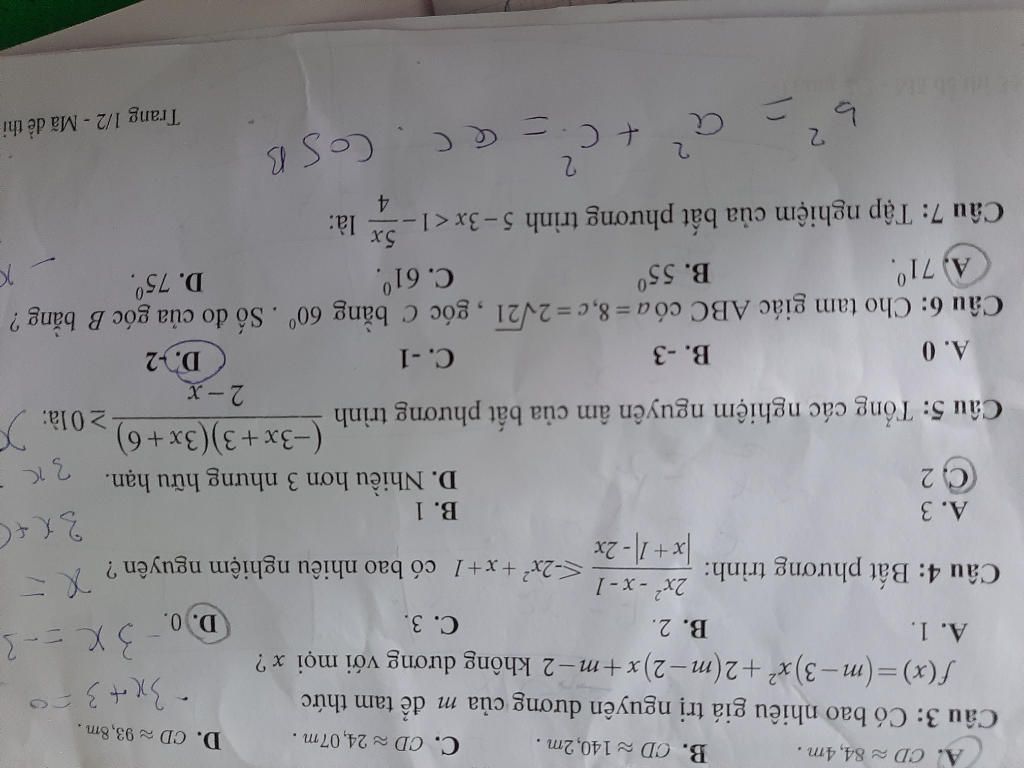 A. CD ≈ 84,4m. B. CD ≈ 140,2m. C. CD ≈ 24,07m. D. CD ≈ 93,8m.
Câu 3: Có bao nhiêu giá trị nguyên dương của m để tam thức
f(x) = (m−3)x² + 2(m−2)x + m−2 không dương với mọi x ?
A. 1. B. 2. C. 3. D. 0.
Câu 4: Bất phương trình: (2x² - x - 1)/(|x+1| - 2x) ≤ -2x² + x + 1 có bao nhiêu nghiệm nguyên ?
A. 3 B. 1
C. 2 D. Nhiều hơn 3 nhưng hữu hạn.
Câu 5: Tổng các nghiệm nguyên âm của bất phương trình (−3x+3)(3x+6)/(2−x) ≥ 0 là:
A. 0 B. -3 C. -1 D. -2
Câu 6: Cho tam giác ABC có a = 8, c = 2√21, góc C bằng 60⁰. Số đo của góc B bằng ?
A. 71⁰. B. 55⁰ C. 61⁰. D. 75⁰.
Câu 7: Tập nghiệm của bất phương trình 5 − 3x < 1 − 5x/4 là:
b² = a² + c² = ac. cosB
Trang 1/2 - Mã đề thi
-3x + 3 = 0
-3x = -3
x =
3x +
3x